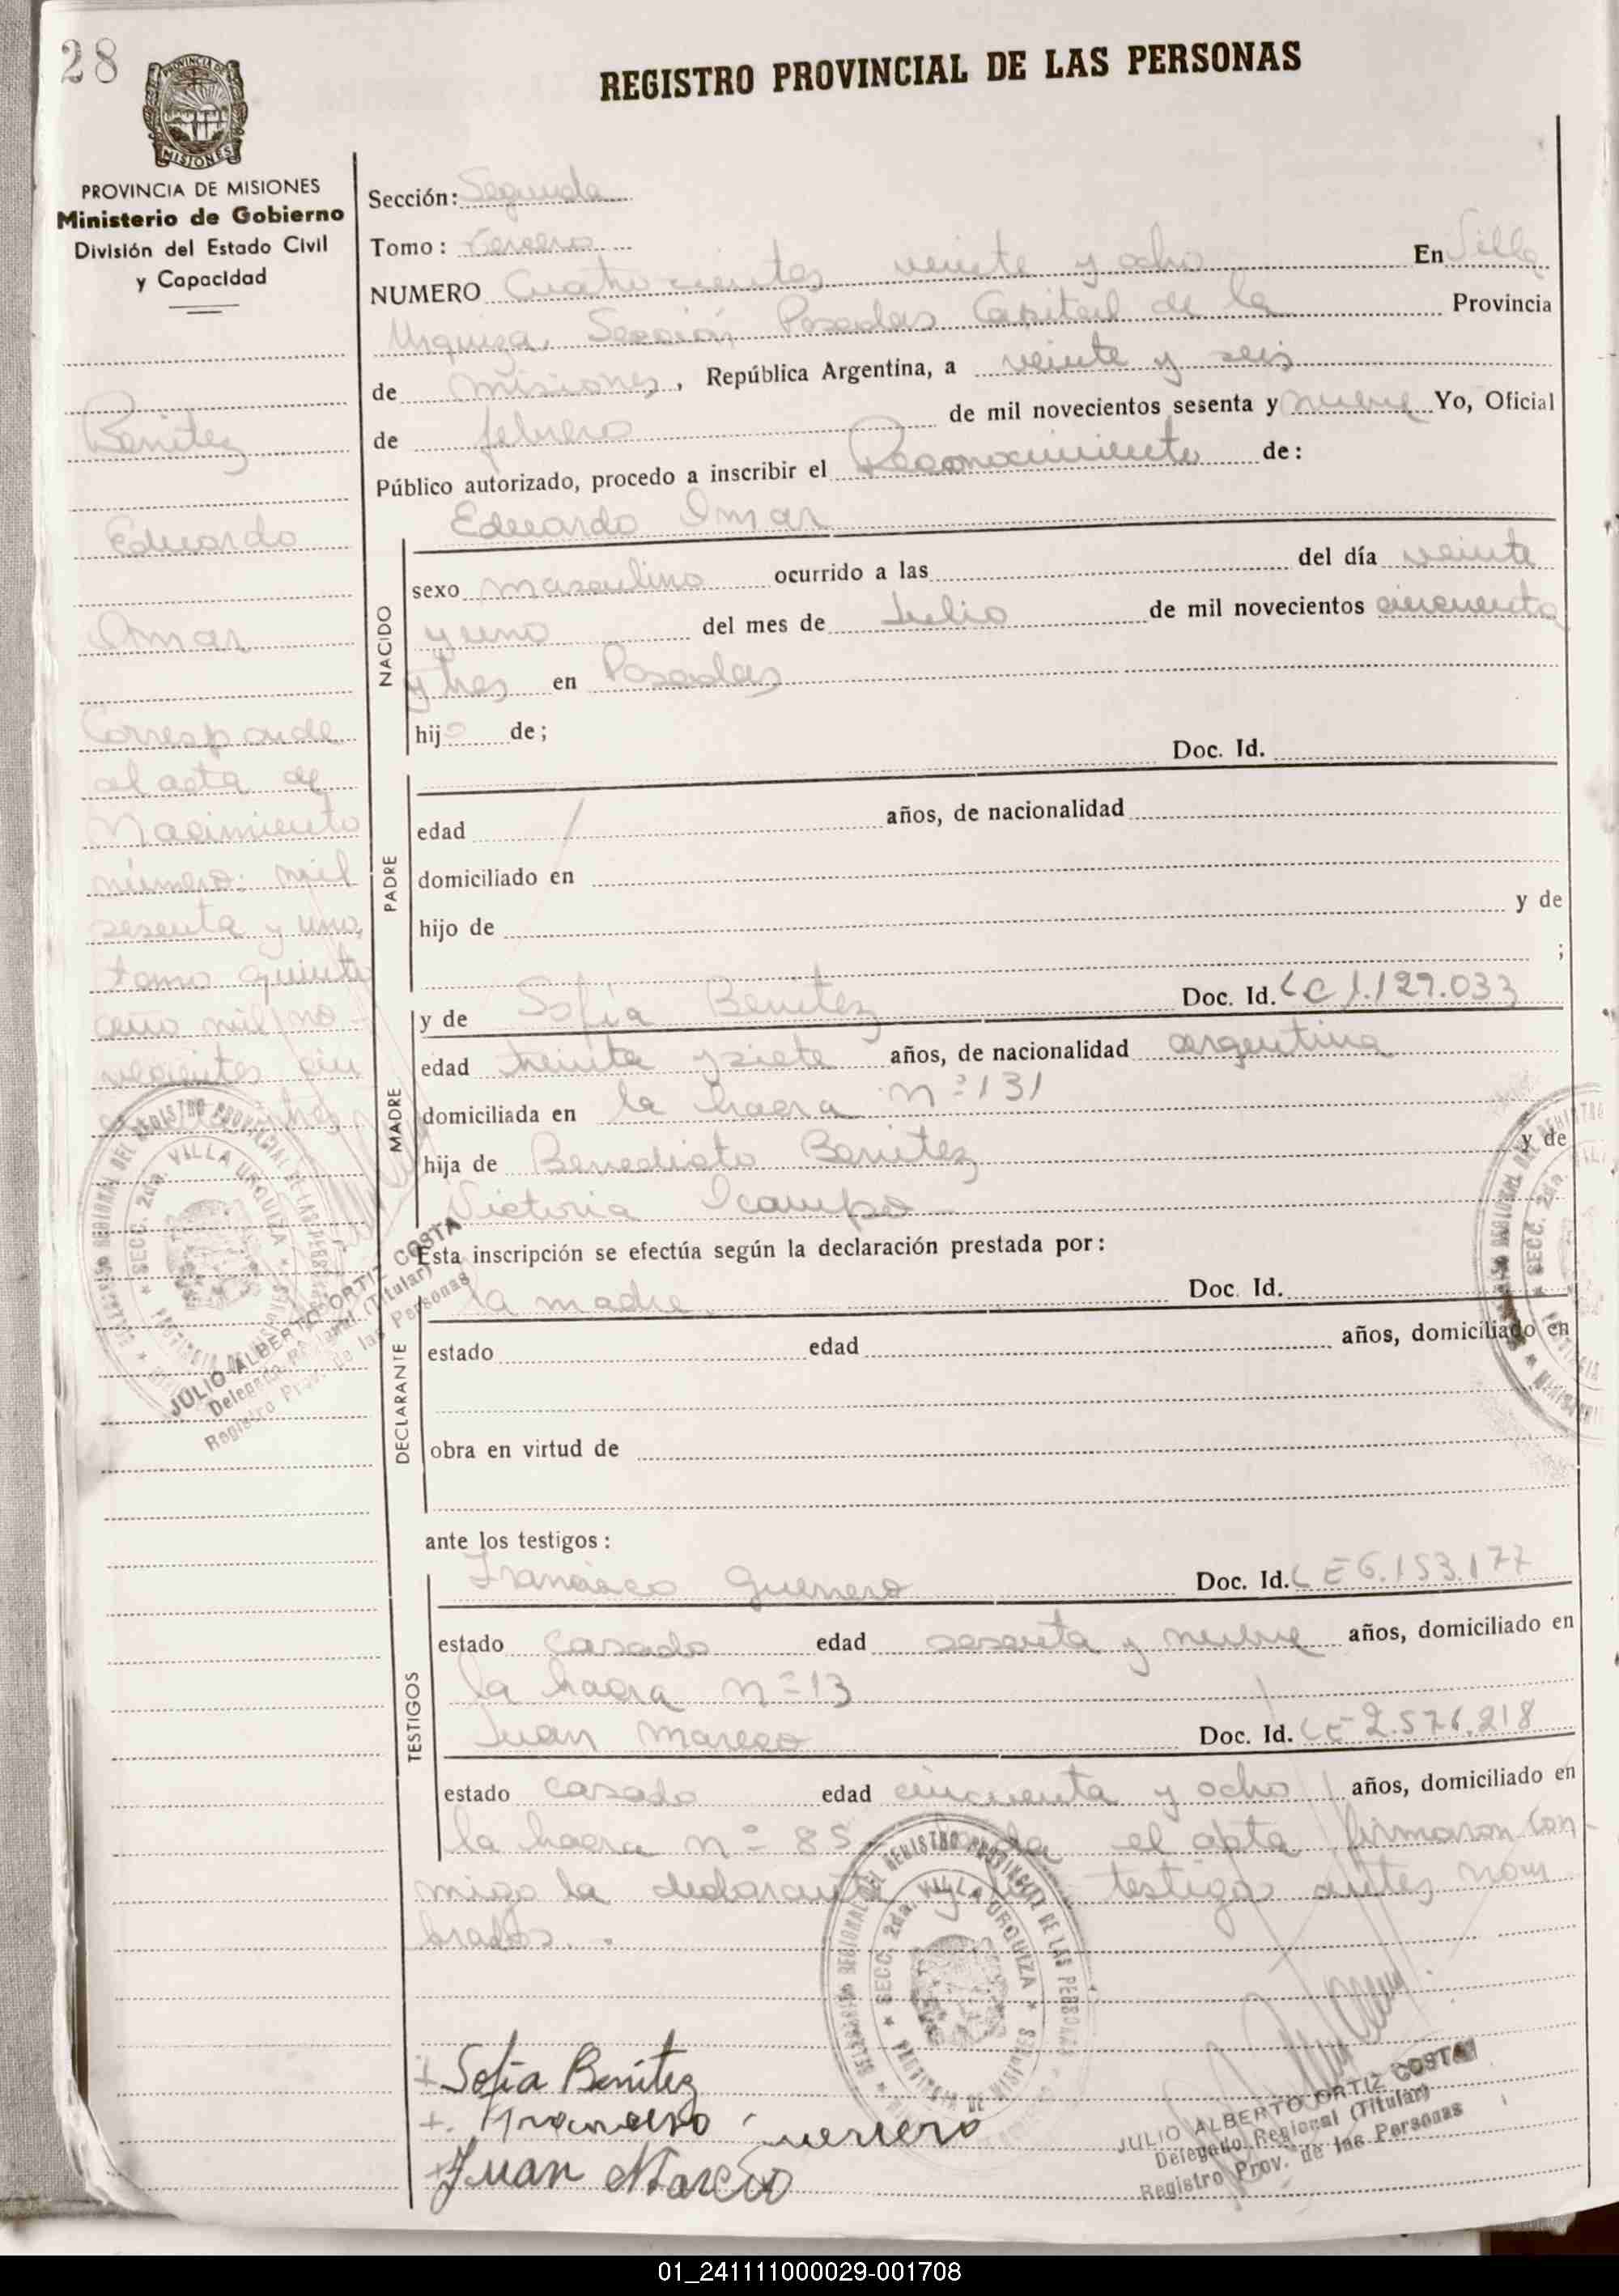 28
REGISTRO PROVINCIAL DE LAS PERSONAS
PROVINCIA DE MISIONES
PROVINCIA DE MISIONES
Ministerio de Gobierno
División del Estado Civil
y Capacidad
Benitez
Eduardo
Omar
Corresponde
al acta de
Nacimiento
número: mil
sesenta y uno,
tomo quinto
año mil no-
vecientos cin
JULIO ALBERTO ORTIZ COSTA
Delegado Regional (Titular)
Registro Prov. de las Personas
Sección: Segunda
Tomo: Tercero
NUMERO Cuatrocientos veinte y ocho En Villa
Urquiza, Sección Posadas Capital de la Provincia
de Misiones, República Argentina, a veinte y seis
de febrero de mil novecientos sesenta y nueve Yo, Oficial
Público autorizado, procedo a inscribir el Reconocimiento de:
Eduardo Omar
NACIDO
sexo masculino ocurrido a las del día veinte
y uno del mes de Julio de mil novecientos cincuenta
y tres en Posadas
hijo de;
Doc. Id.
PADRE
edad años, de nacionalidad
domiciliado en
hijo de y de
;
y de Sofía Benitez Doc. Id. LC 1.129.033
MADRE
edad treinta y siete años, de nacionalidad argentina
domiciliada en la hacra nº 131
hija de Benedicto Benitez y de
Victoria Ocampo
Esta inscripción se efectúa según la declaración prestada por:
la madre Doc. Id.
DECLARANTE
estado edad años, domiciliado en
obra en virtud de
ante los testigos:
Francisco Guerrero Doc. Id. LE 6.153.177
TESTIGOS
estado casado edad sesenta y nueve años, domiciliado en
la hacra nº 13
Juan Mareco Doc. Id. LE 2.576.218
estado casado edad cincuenta y ocho años, domiciliado en
la hacra nº 85 el acta firmaron con-
migo la declarante testigos antes nom
brados.
SECC. 2da. VILLA URQUIZA
+ Sofia Benitez
+ Francisco Guerrero
+ Juan Mareco
JULIO ALBERTO ORTIZ COSTA
Delegado Regional (Titular)
Registro Prov. de las Personas
01_241111000029-001708